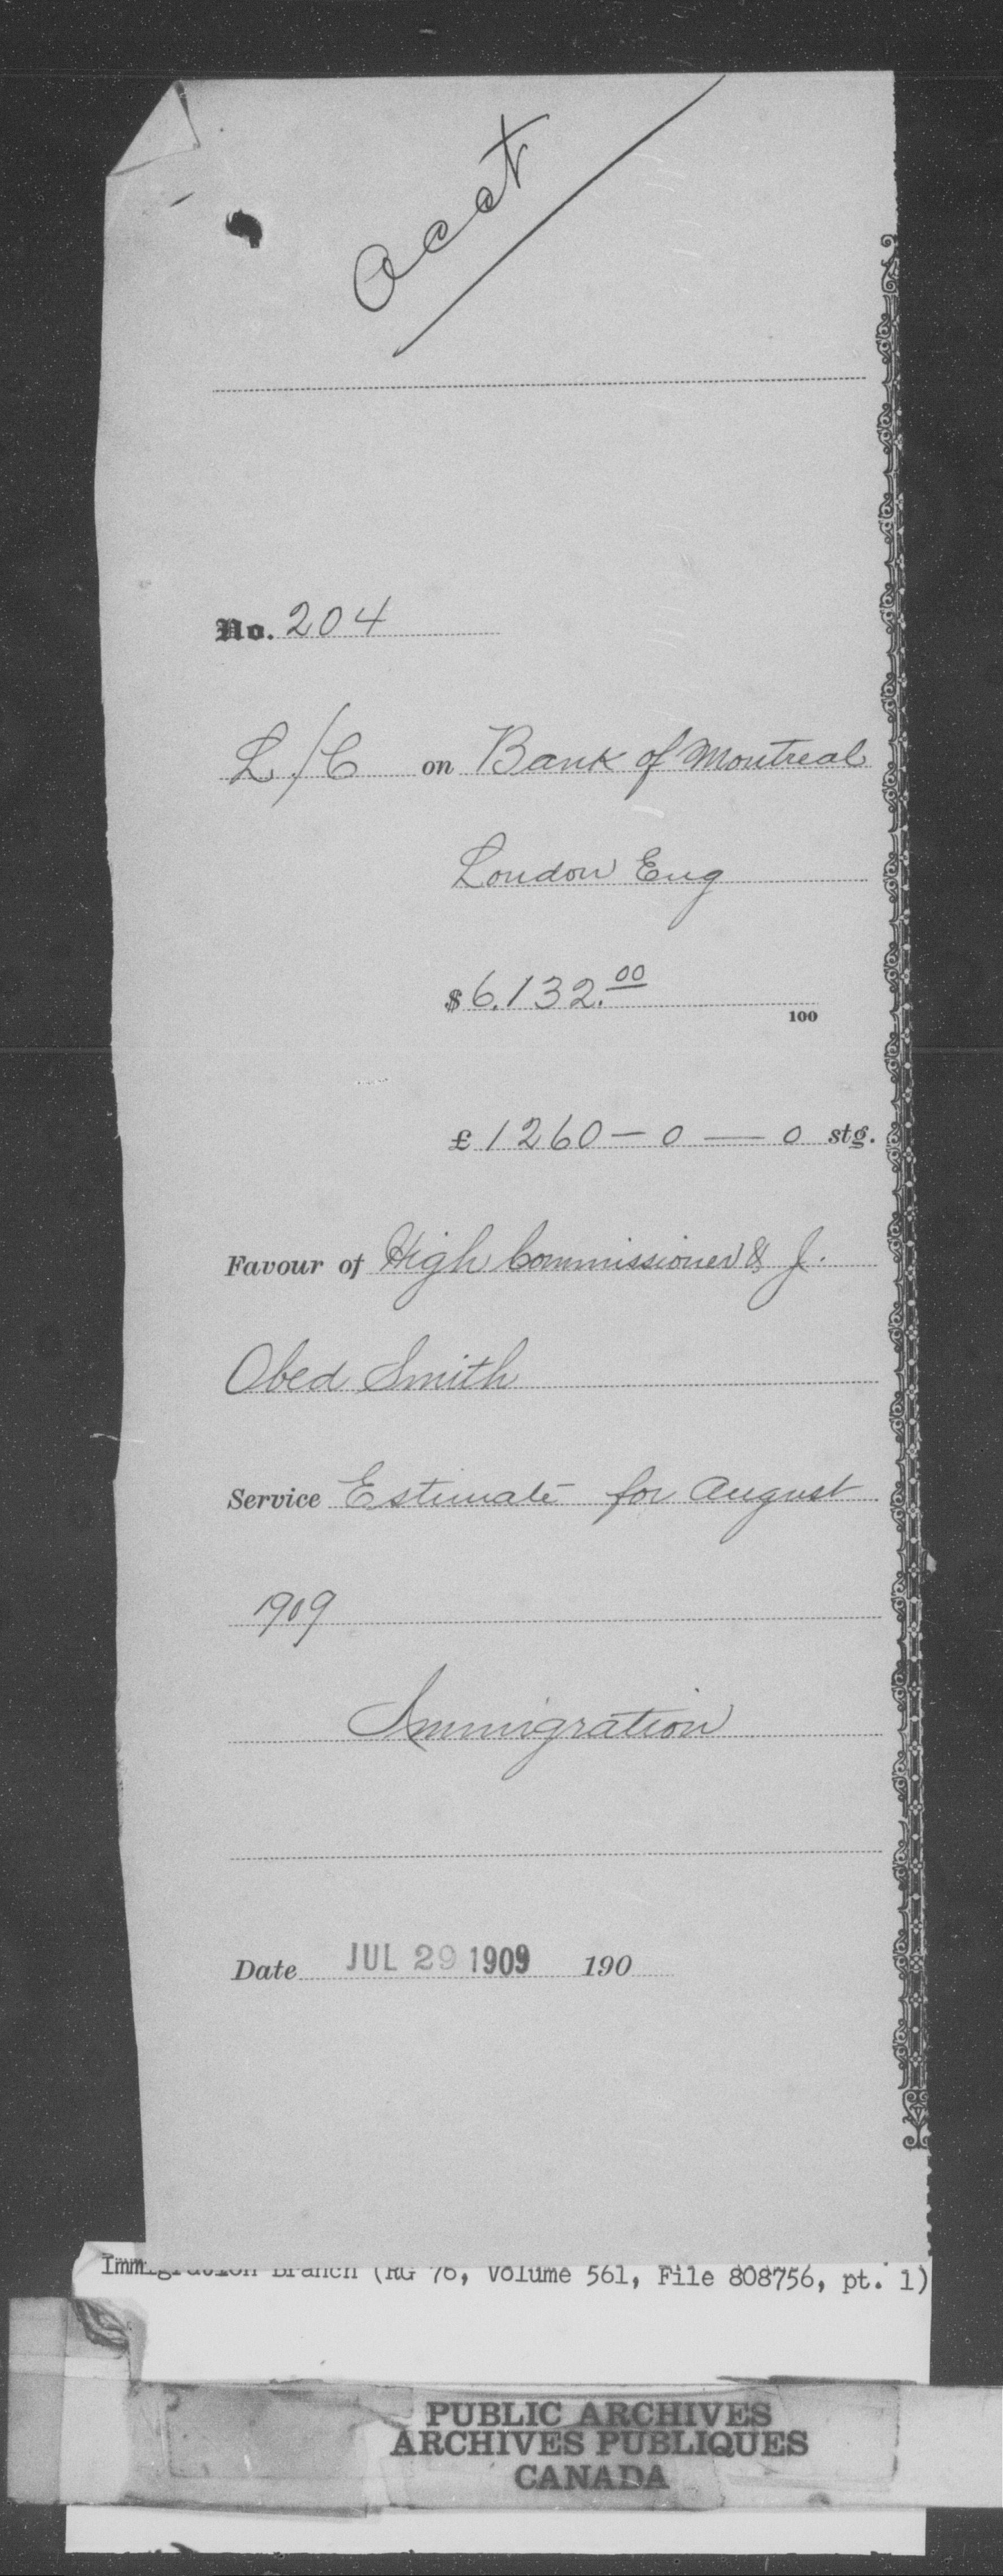 acct
No. 204
L/C on Bank of Montreal
London Eng
$ 6.132.00
100
£ 1260 — 0 — 0 stg.
Favour of High Commissioner & J.
Obed Smith
Service Estimate for August
1909
Immigration
Date JUL 29 1909 190
Immigration Branch (RG 76, Volume 561, File 808756, pt. 1)
PUBLIC ARCHIVES
ARCHIVES PUBLIQUES
CANADA